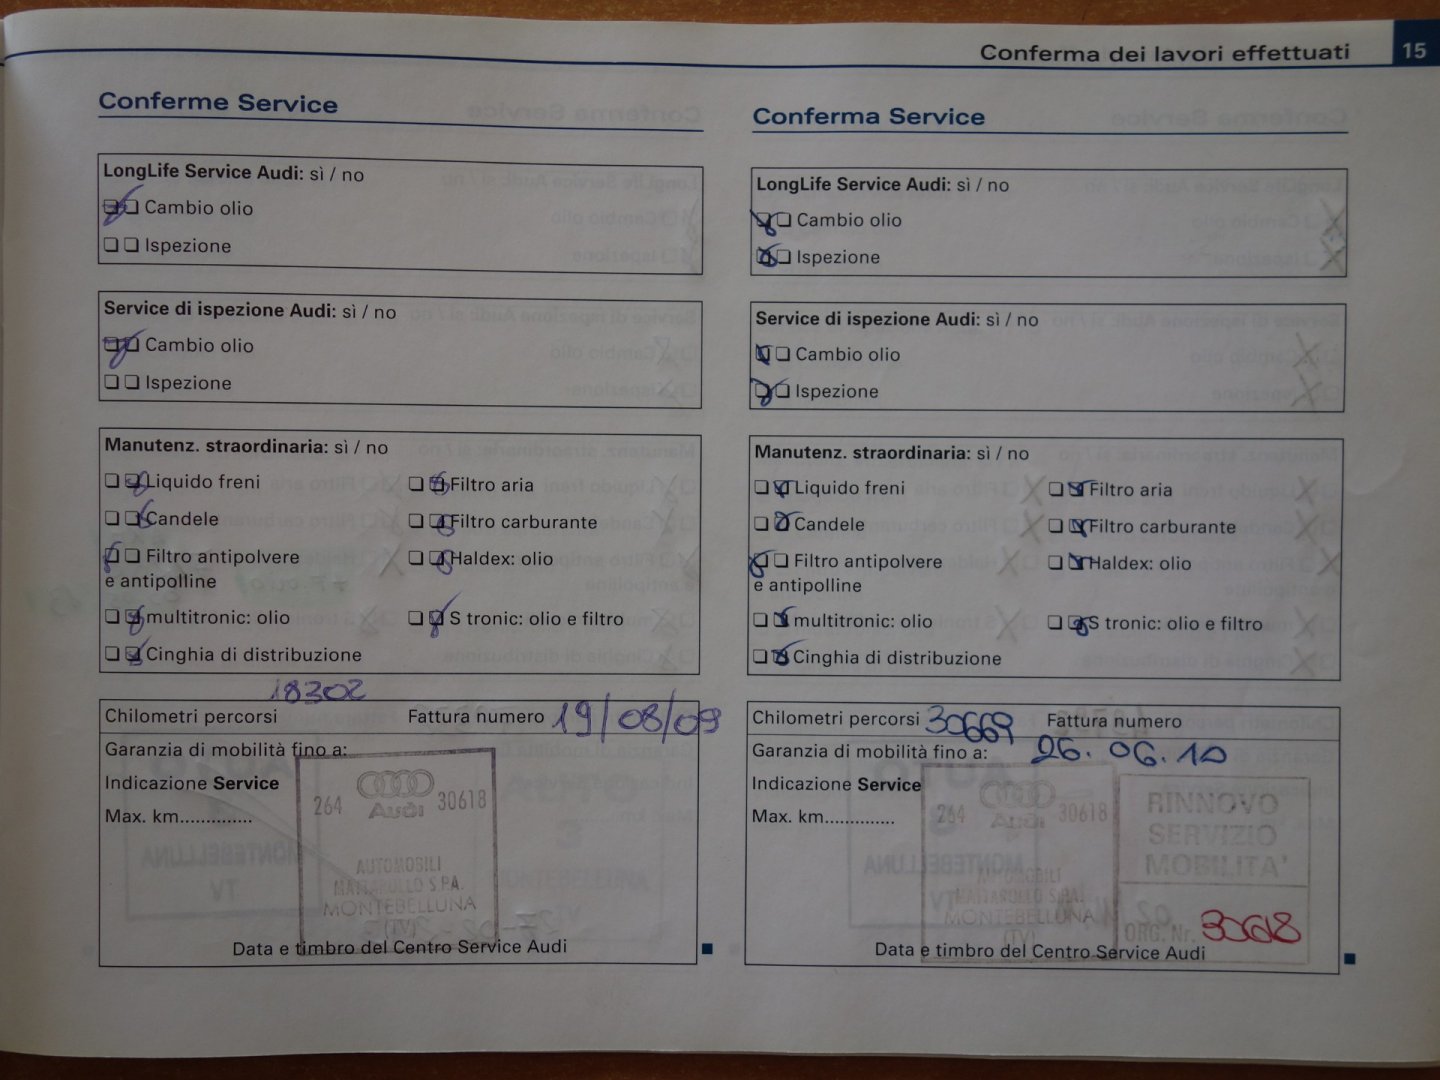 Conferma dei lavori effettuati 15
Conferme Service
LongLife Service Audi: sì / no
❏❏ Cambio olio
❏❏ Ispezione
Service di ispezione Audi: sì / no
❏❏ Cambio olio
❏❏ Ispezione
Manutenz. straordinaria: sì / no
❏❏ Liquido freni ❏❏ Filtro aria
❏❏ Candele ❏❏ Filtro carburante
❏❏ Filtro antipolvere ❏❏ Haldex: olio
e antipolline
❏❏ multitronic: olio ❏❏ S tronic: olio e filtro
❏❏ Cinghia di distribuzione
18302
Chilometri percorsi Fattura numero 19/08/09
Garanzia di mobilità fino a:
Indicazione Service
Max. km..............
264 Audi 30618
AUTOMOBILI
MATTAROLLO S.P.A.
MONTEBELLUNA
(TV)
Data e timbro del Centro Service Audi
Conferma Service
LongLife Service Audi: sì / no
❏❏ Cambio olio
❏❏ Ispezione
Service di ispezione Audi: sì / no
❏❏ Cambio olio
❏❏ Ispezione
Manutenz. straordinaria: sì / no
❏❏ Liquido freni ❏❏ Filtro aria
❏❏ Candele ❏❏ Filtro carburante
❏❏ Filtro antipolvere ❏❏ Haldex: olio
e antipolline
❏❏ multitronic: olio ❏❏ S tronic: olio e filtro
❏❏ Cinghia di distribuzione
Chilometri percorsi 30669 Fattura numero
Garanzia di mobilità fino a: 26.06.10
Indicazione Service
Max. km..............
264 Audi 30618
AUTOMOBILI
MATTAROLLO S.P.A.
MONTEBELLUNA
(TV)
RINNOVO
SERVIZIO
MOBILITA'
ORG. Nr. 30618
Data e timbro del Centro Service Audi